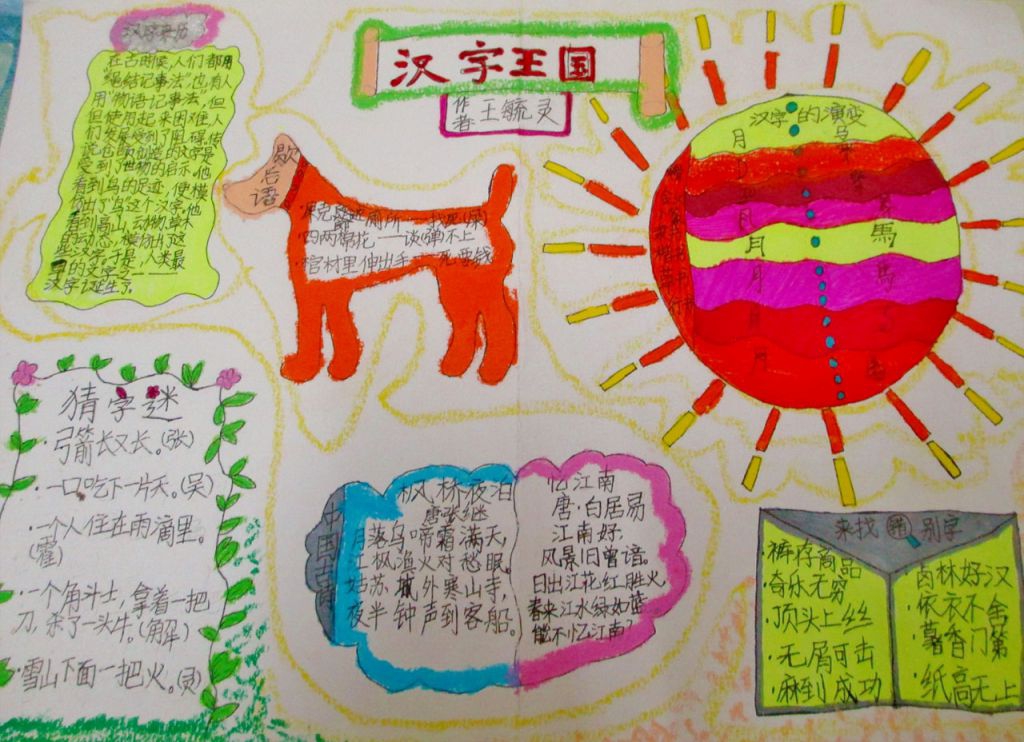 汉字王国
作者:王毓灵
汉字来历
在古时候,人们都用
"绳结记事法"也有人
用物语记事法,但
但使用起来困难,人
看到鸟的足迹,便模
仿出了鸟这个汉字,他
汉字诞生了。
歇后语
·四两棉花——谈(弹)不上
·官材里伸出手——死要钱
汉字的演变
月
月
馬
月
月
猜字迷
·弓箭长又长。(张)
·一口吃下一片天。(吴)
·一个人住在雨滴里。
(霍)
·一个角斗士,拿着一把
刀,杀了一头牛。(解)
·雪山下面一把火。(灵)
中国古诗
枫桥夜泊
唐张继
月落乌啼霜满天,
江枫渔火对愁眠。
姑苏城外寒山寺,
夜半钟声到客船。
忆江南
唐·白居易
江南好,
风景旧曾谙。
日出江花红胜火
春来江水绿如蓝
能不忆江南?
来找错别字
·裤存商品
·奇乐无穷
·顶头上丝
·无屑可击
·麻到成功
卤林好汉
·依衣不舍
·薯香门第
·纸高无上